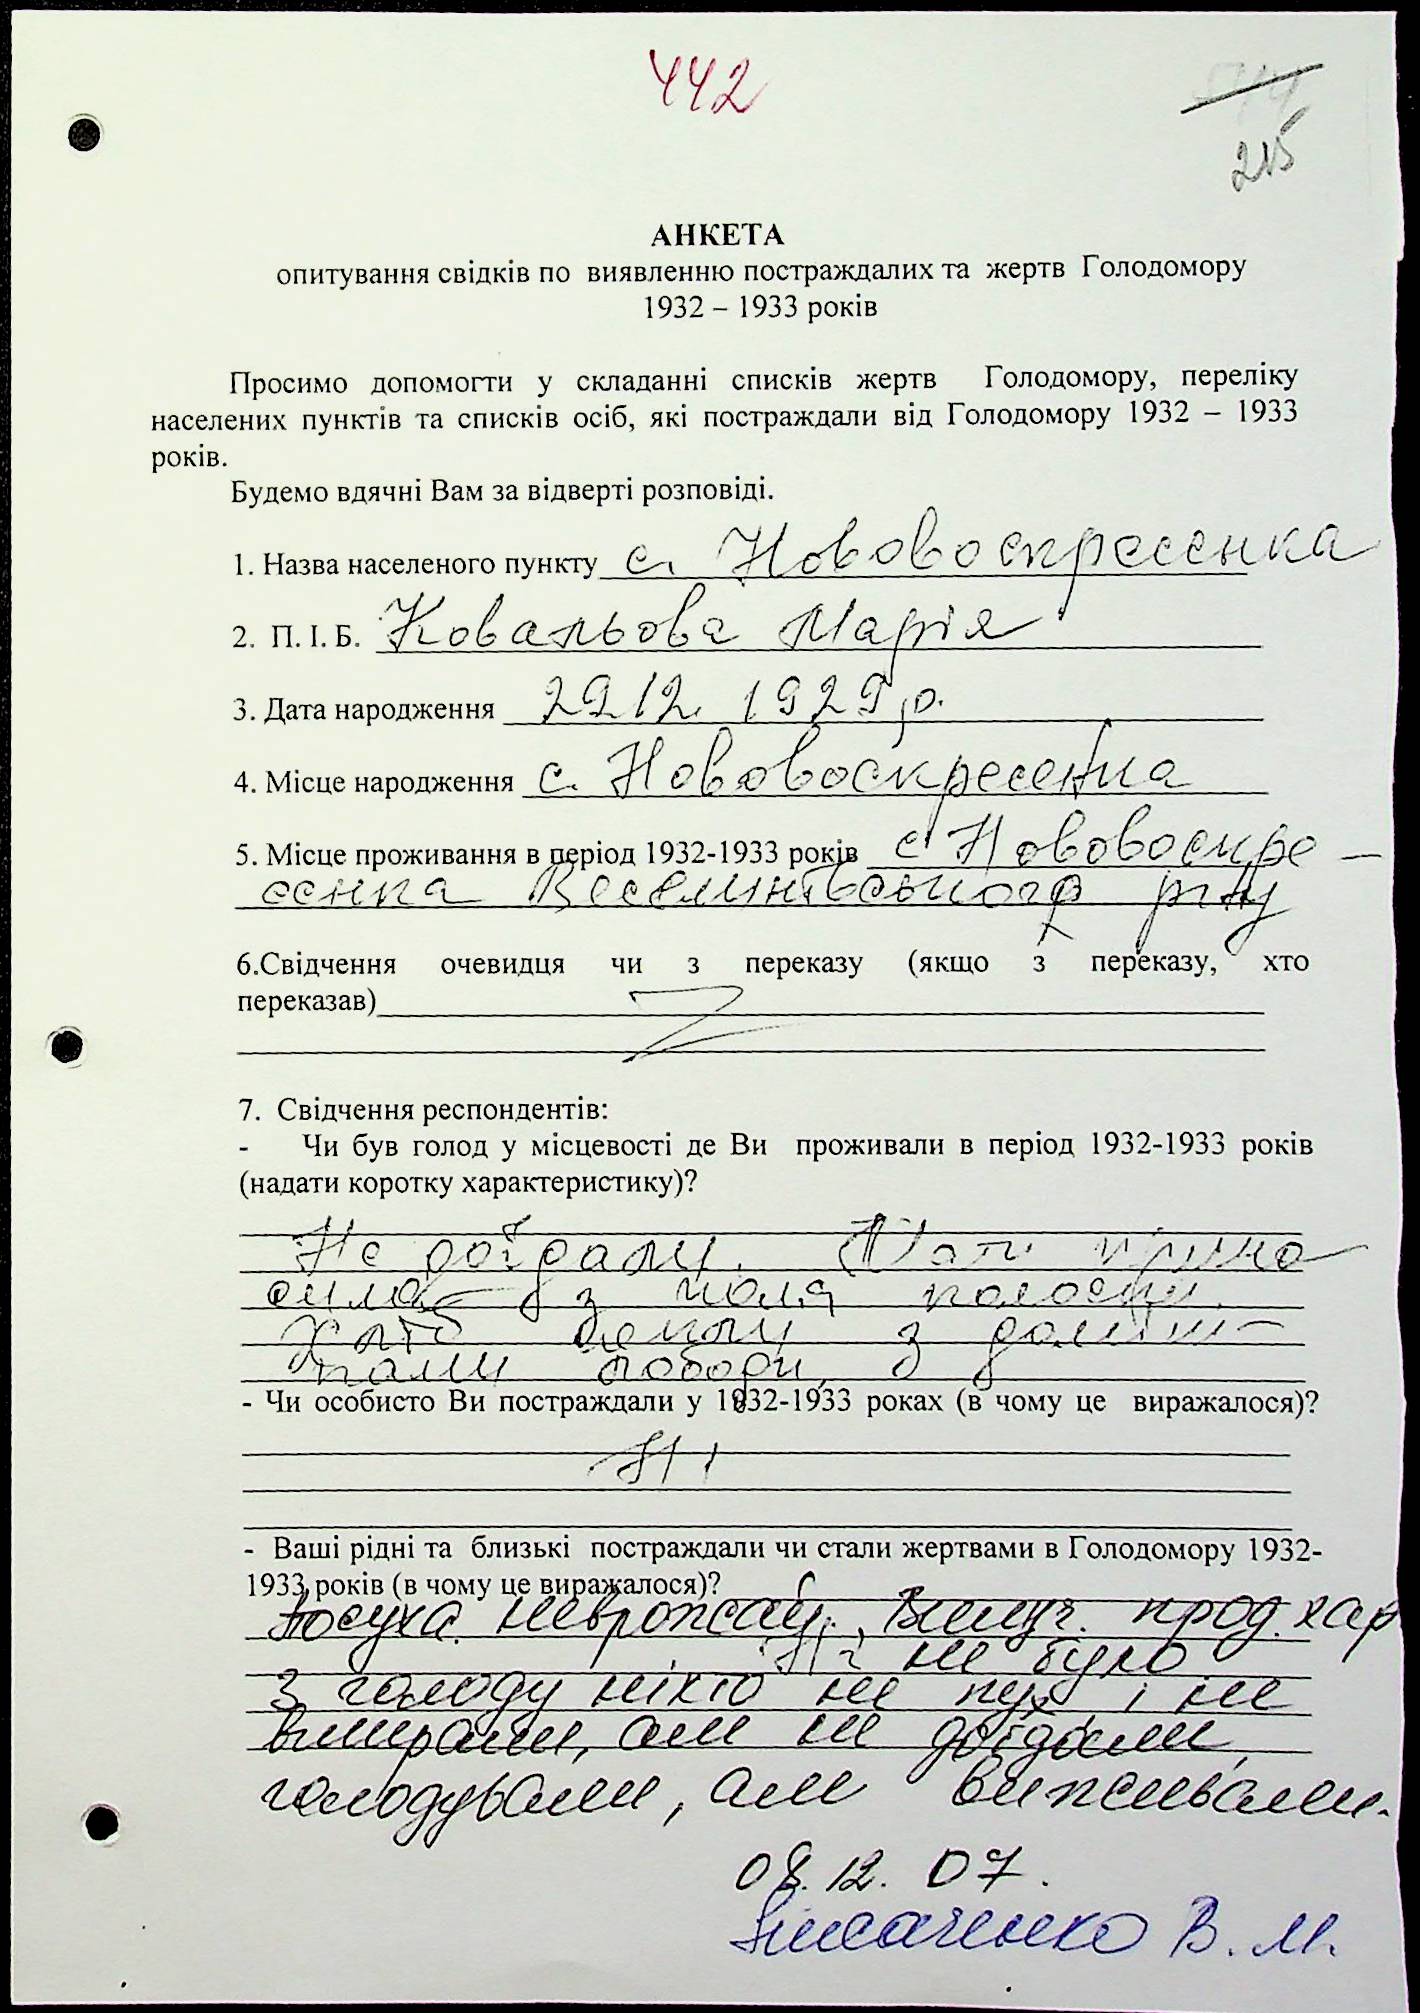 442
215
АНКЕТА
опитування свідків по виявленню постраждалих та жертв Голодомору
1932 – 1933 років
Просимо допомогти у складанні списків жертв Голодомору, переліку
населених пунктів та списків осіб, які постраждали від Голодомору 1932 – 1933
років.
Будемо вдячні Вам за відверті розповіді.
1. Назва населеного пункту с. Нововоскресенка
2. П. І. Б. Ковальова Марія
3. Дата народження 29 12. 1929 р.
4. Місце народження с. Нововоскресенка
5. Місце проживання в період 1932-1933 років с Нововоскре –
сенка Веселинівського р-ну
6.Свідчення очевидця чи з переказу (якщо з переказу, хто
переказав)
7. Свідчення респондентів:
- Чи був голод у місцевості де Ви проживали в період 1932-1933 років
(надати коротку характеристику)?
Не доїдали. Мати прино
сила з поля колоски.
Хліб пекли з доміш-
ками
- Чи особисто Ви постраждали у 1932-1933 роках (в чому це виражалося)?
Ні
- Ваші рідні та близькі постраждали чи стали жертвами в Голодомору 1932-
1933 років (в чому це виражалося)?
Посуха. неврожай, Вилуч. прод. хар
не було
З голоду ніхто не пух і не
вмирали, али не доїдали,
голодували, али виживали.
08.12.07.
Лисаченко В. М.